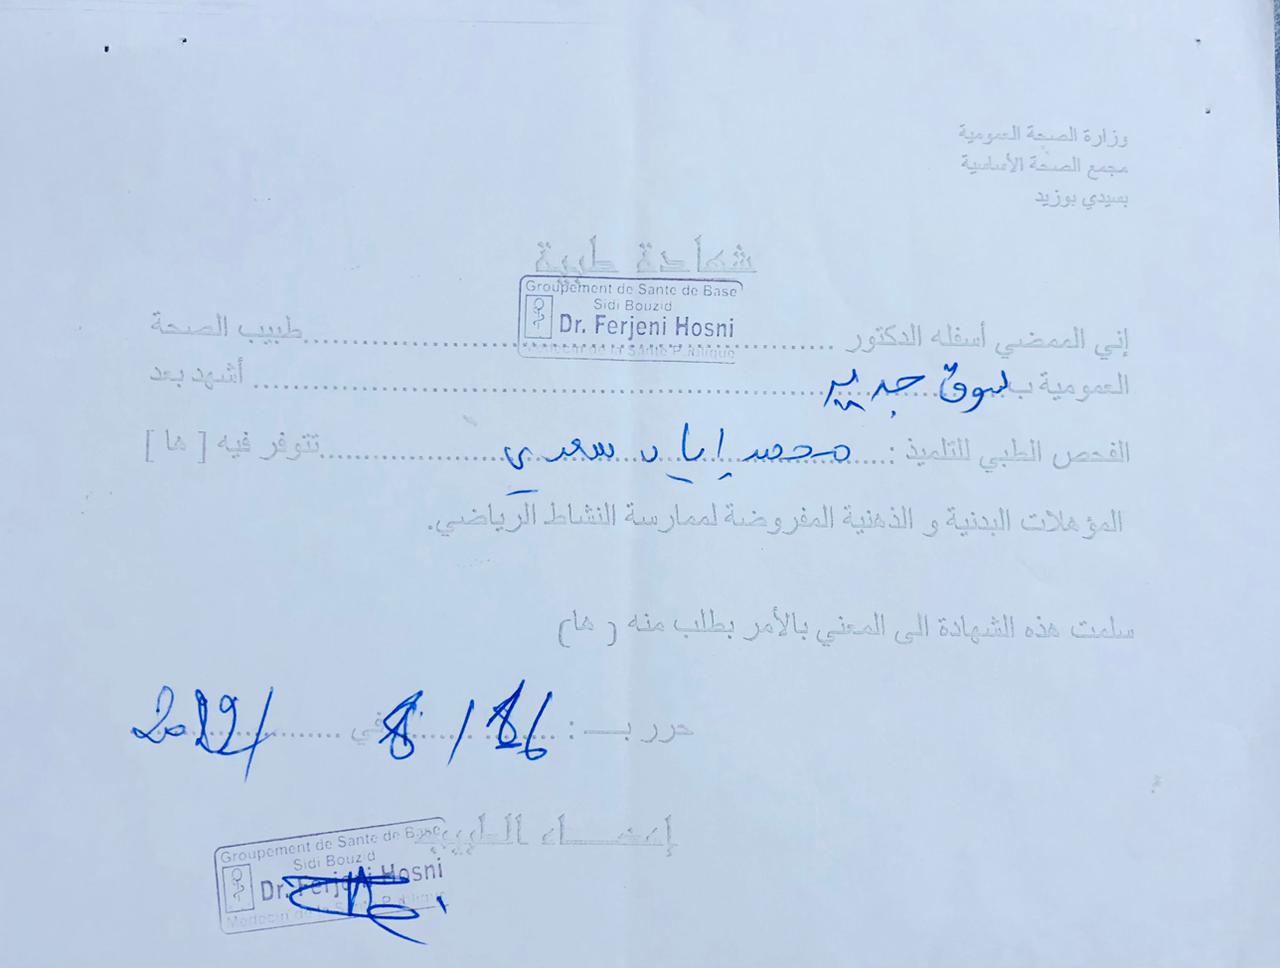 وزارة الصحة العمومية
مجمع الصحة الأساسية
بسيدي بوزيد
شهادة طبية
Groupement de Sante de Base
Sidi Bouzid
Dr. Ferjeni Hosni
Medecin de la Santé Publique
إني الممضي أسفله الدكتور ........................ طبيب الصحة
العمومية ب سوق جديد ........................ أشهد بعد
الفحص الطبي للتلميذ : محمد إياد سعدي ........................ تتوفر فيه [ ها ]
المؤهلات البدنية و الذهنية المفروضة لممارسة النشاط الرياضي.
سلمت هذه الشهادة الى المعني بالأمر بطلب منه ( ها)
حرر بـــ : ........ في ........
إمضــــاء الطبيب
Groupement de Sante de Base
Sidi Bouzid
Dr. Ferjeni Hosni
Medecin de la Santé Publique